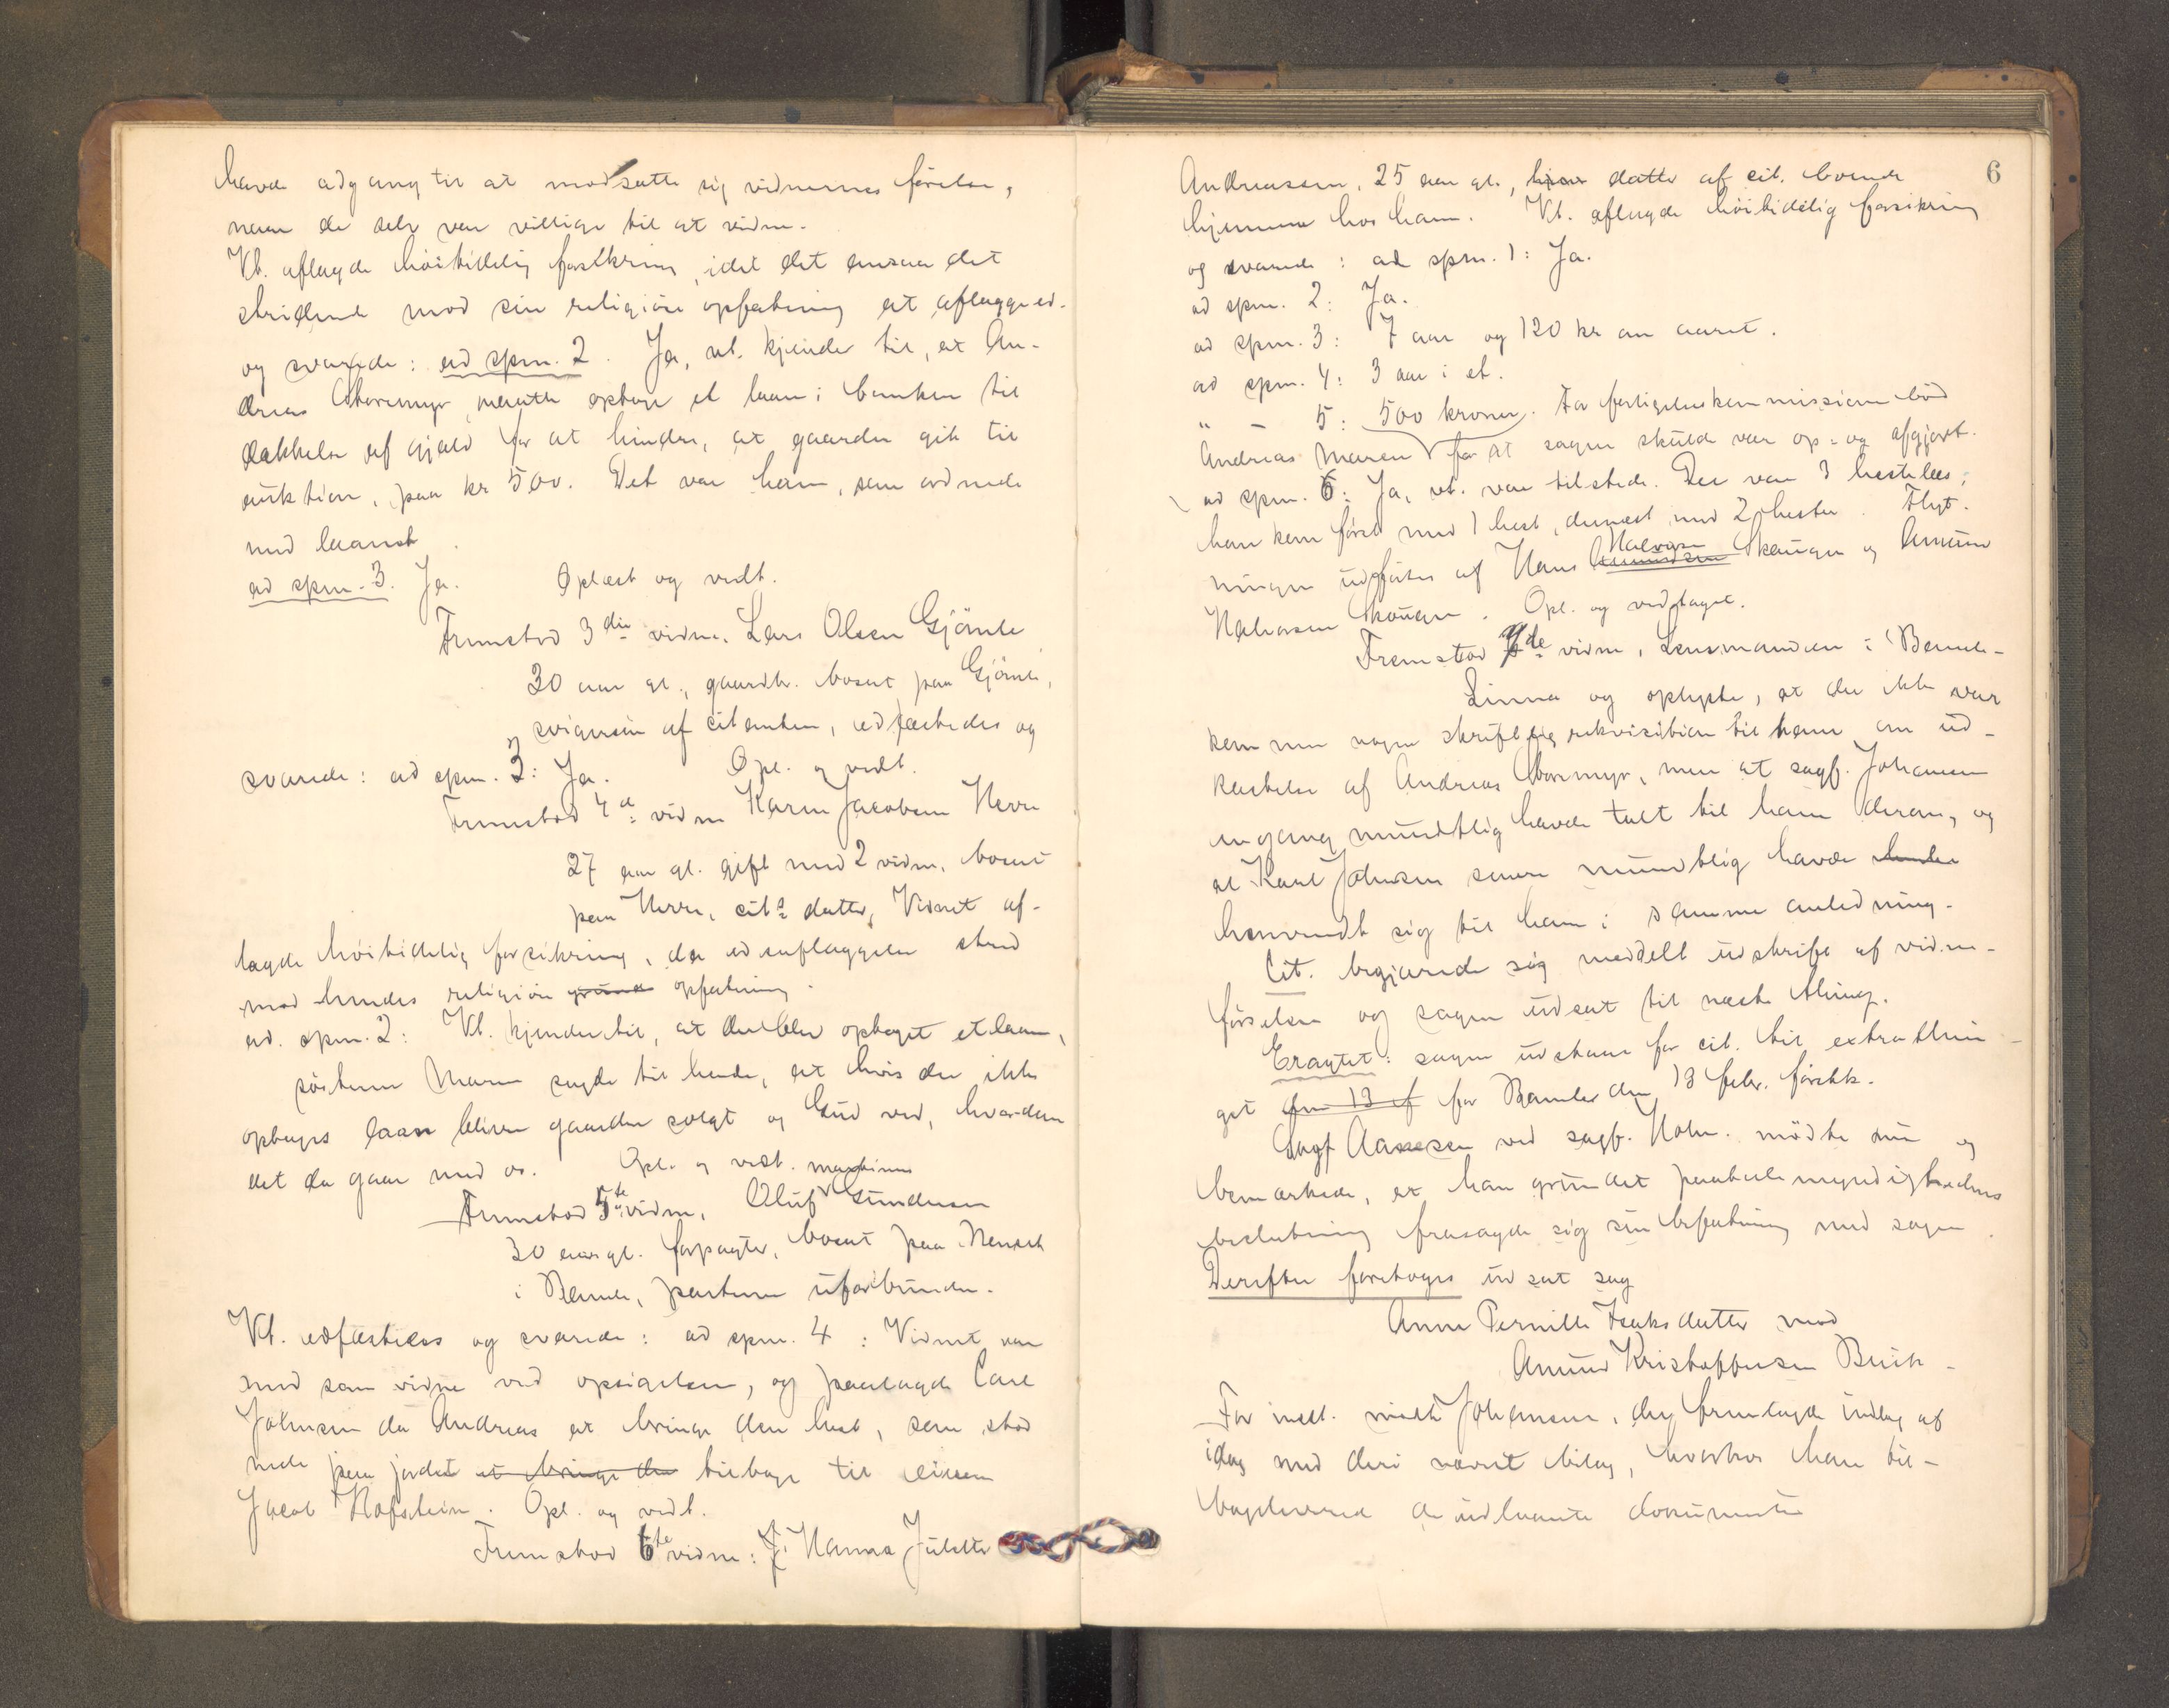 havde adgang til at modsætte sig vidnernes førelse,
naar de selv var villige til at vidne.
Vt. aflagde høitidelig forsikring, idet det ansaa det
stridende mod sin religiøse opfatning at aflægge ed.
og svarede: ad spm. 2. Ja, vt. kjender til, at An-
dreas maatte optage et laan i banken til
dækkelse af gjæld for at hindre, at gaarden gik til
auktion, paa kr 500. Det var ham, som ordnede
med laanet.
ad spm. 3. Ja. Oplæst og vedt.
Fremstod 3die vidne, Lars Olsen Gjømle
30 aar gl., gaardbr. bosat paa Gjømle,
svigersøn af citanten, edfæstedes og
svarede: ad spm. 3: Ja. Opl. og vedt.
Fremstod 4de vidne Karen Jacobsen Herre
27 aar gl. gift med 2 vidne, bosat
paa Herre, cits datter, Vidnet af-
lagde høitidelig forsikring, da edsaflæggelse stred
mod hendes religiøse opfatning.
ad. spm. 2: Vt. kjender til, at der blev optaget et laan,
søsteren Maren sagde til hende, at hvis der ikke
optages laan bliver gaarden solgt og Gud ved, hvordan
det da gaar med os. Opl. og vedt.
Fremstod 5te vidne, Oluf Mathias Gundersen
30 aar gl. forpagter, bosat paa
i Bamle, parterne uforbunden.
Vt. edfæstedes og svarede: ad spm. 4: Vidnet var
med som vidne ved opsigelsen, og paalagde Carl
Johnsen da Andreas at bringe den hest, som stod
nede paa jordet at bringe den tilbage til eieren
Jacob Rafstein. Opl. og vedt.
Fremstod 6te vidne: Hanna Julette
6
Andreassen, 25 aar gl., datter af cit. boende
hjemme hos ham. Vt. aflagde høitidelig forsikring
og svarede: ad spm. 1: Ja.
ad spm. 2: Ja.
ad spm. 3: 7 aar og 120 kr om aaret.
ad spm. 4: 3 aar i et.
" - 5: 500 kroner. For forligelseskommissionen bød
Andreas Maren for at sagen skulde være op- og afgjort.
ad spm. 6: Ja, vt. var tilstede. Der var 3 hestelæs;
han kom først med 1 hest, dernæst med 2 heste. Flyt-
ningen udførtes af Hans Amundsen Halvorsen Skaugen og Amund
Halvorsen Skaugen. Opl. og vedtaget.
Fremstod 7de vidne, Lensmanden i Bamle
Linna og oplyste, at der ikke var
kommen nogen skriftlig rekvisition til ham om ud-
kastelse af Andreas, men at sagf. Johansen
engang mundtlig havde talt til ham derom, og
at Karl Johnsen senere mundtlig havde
henvendt sig til ham i samme anledning.
Cit. begjærede sig meddelt udskrift af vidne-
førselen og sagen udsat til næste thing.
Eragtet: sagen udstaar for cit. til extrathin-
get den 13 f for Bamle den 13 febr. førstk.
Sagf Aanesen ved sagf. Holm. mødte nu og
bemærkede, at han grundet paabudemyndighedens
beslutning frasagde sig sin befatning med sagen.
Derefter foretoges udsat sag
Anne Pernille Isaksdatter mod
Amund Kristoffersen Buik.
For indst. mødte Johansen, der fremlagde indlæg af
idag med deri nævnt bilag, hvorhos han til-
bageleverede de udlaante dokumenter